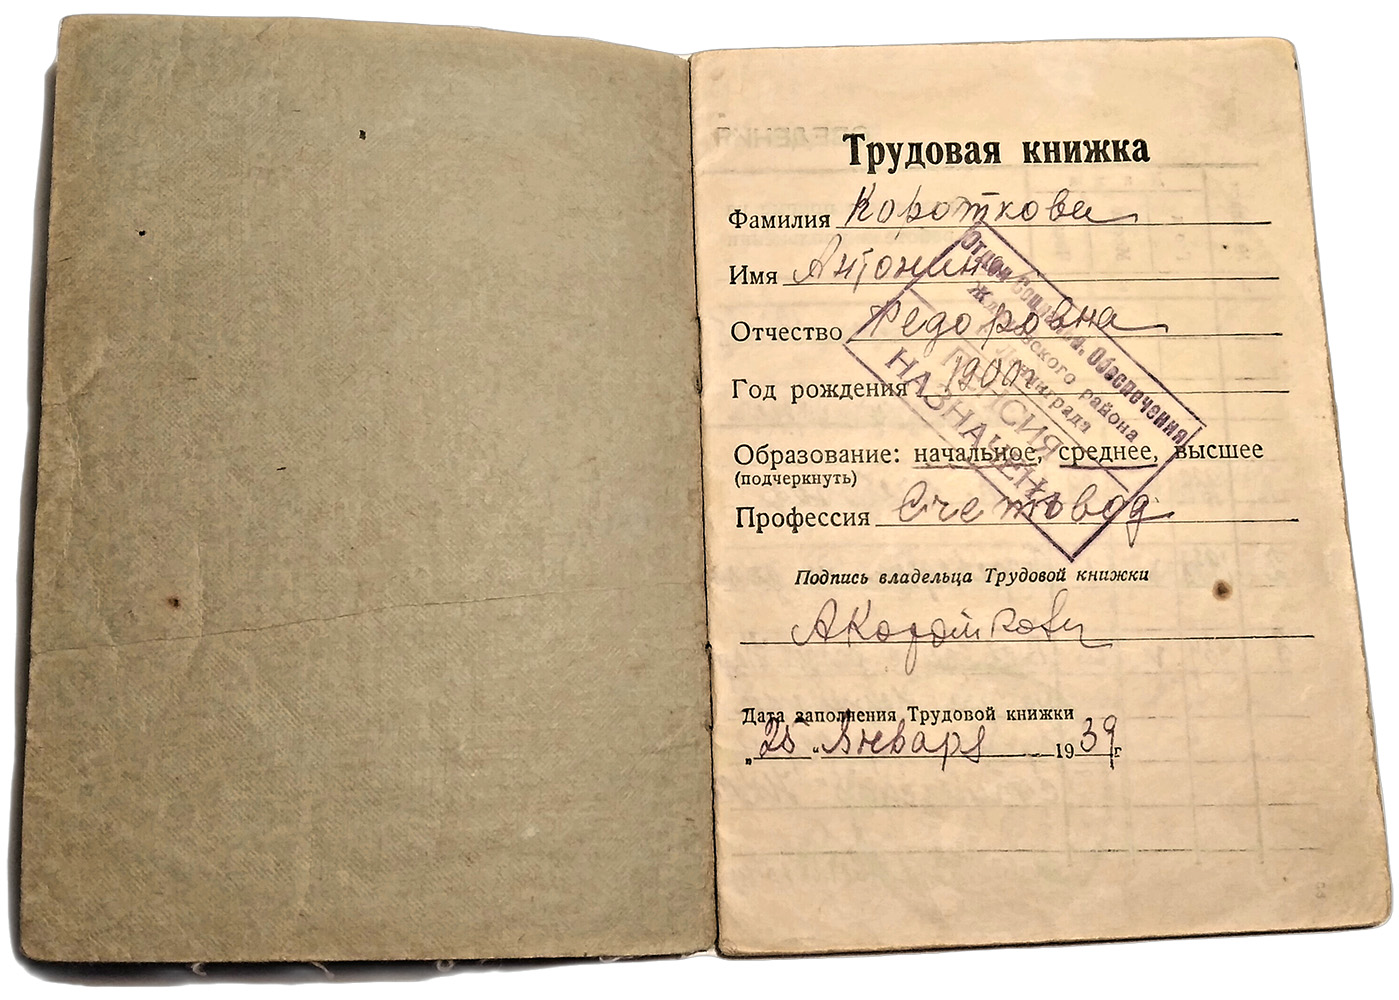 Трудовая книжка
Фамилия Короткова
Имя Антонина
Отчество Федоровна
Год рождения 1900г
Образование: начальное, среднее, высшее
(подчеркнуть)
Профессия Счетовод
Подпись владельца Трудовой книжки
АКороткова
Дата заполнения Трудовой книжки
„25" Января 1939г
Отдел Социальн. Обеспечения
района
Ленинграда
ПЕНСИЯ
НАЗНАЧЕНА